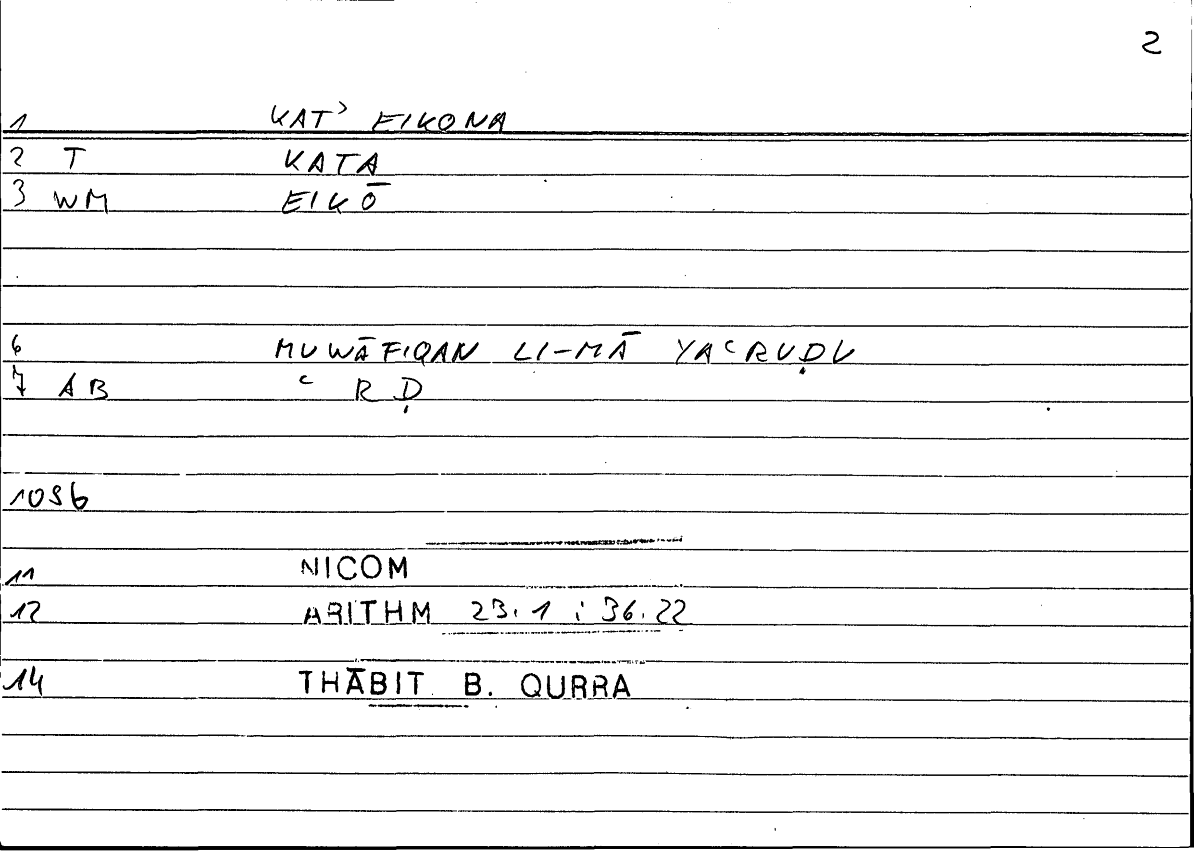 2
1 KAT' EIKONA
2 T KATA
3 WM EIKŌ
6 MUWĀFIQAN LI-MĀ YAʿRUḌU
7 AB ʿ R Ḍ
1096
11 NICOM
12 ARITHM 23.1 ; 36.22
14 THĀBIT B. QURRA